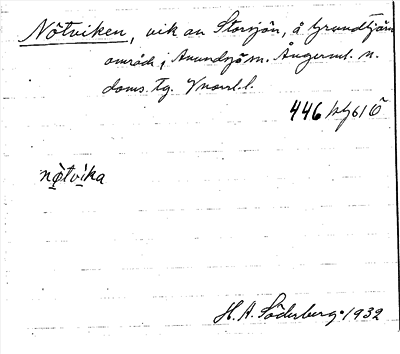 Nötviken, vik av Storsjön, å Grundtjärn
område i Anundsjö sn. Ångerml. n.
doms. tg. Vnorrl. l.
446
nọ̀tvi̱ka
H. A. Söderberg 1932